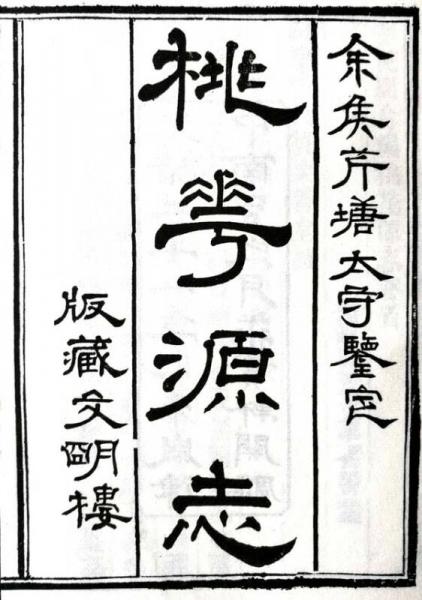 余矦芹塘太守鑒定
桃花源志
版藏文明樓